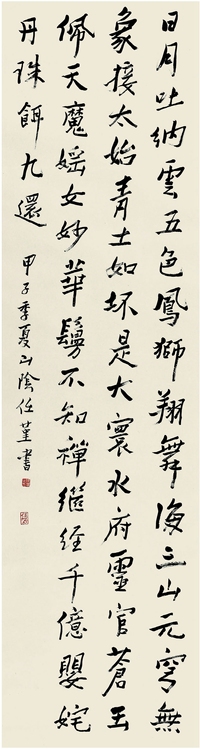 日月吐納雲五色鳳獅翔舞海三山元穹無
象接太始青土如坏是大寰水府靈官蒼玉
佩天魔媱女妙華鬘不知禪繼經千億嬰姹
丹珠餌九還
甲子季夏山陰任堇書